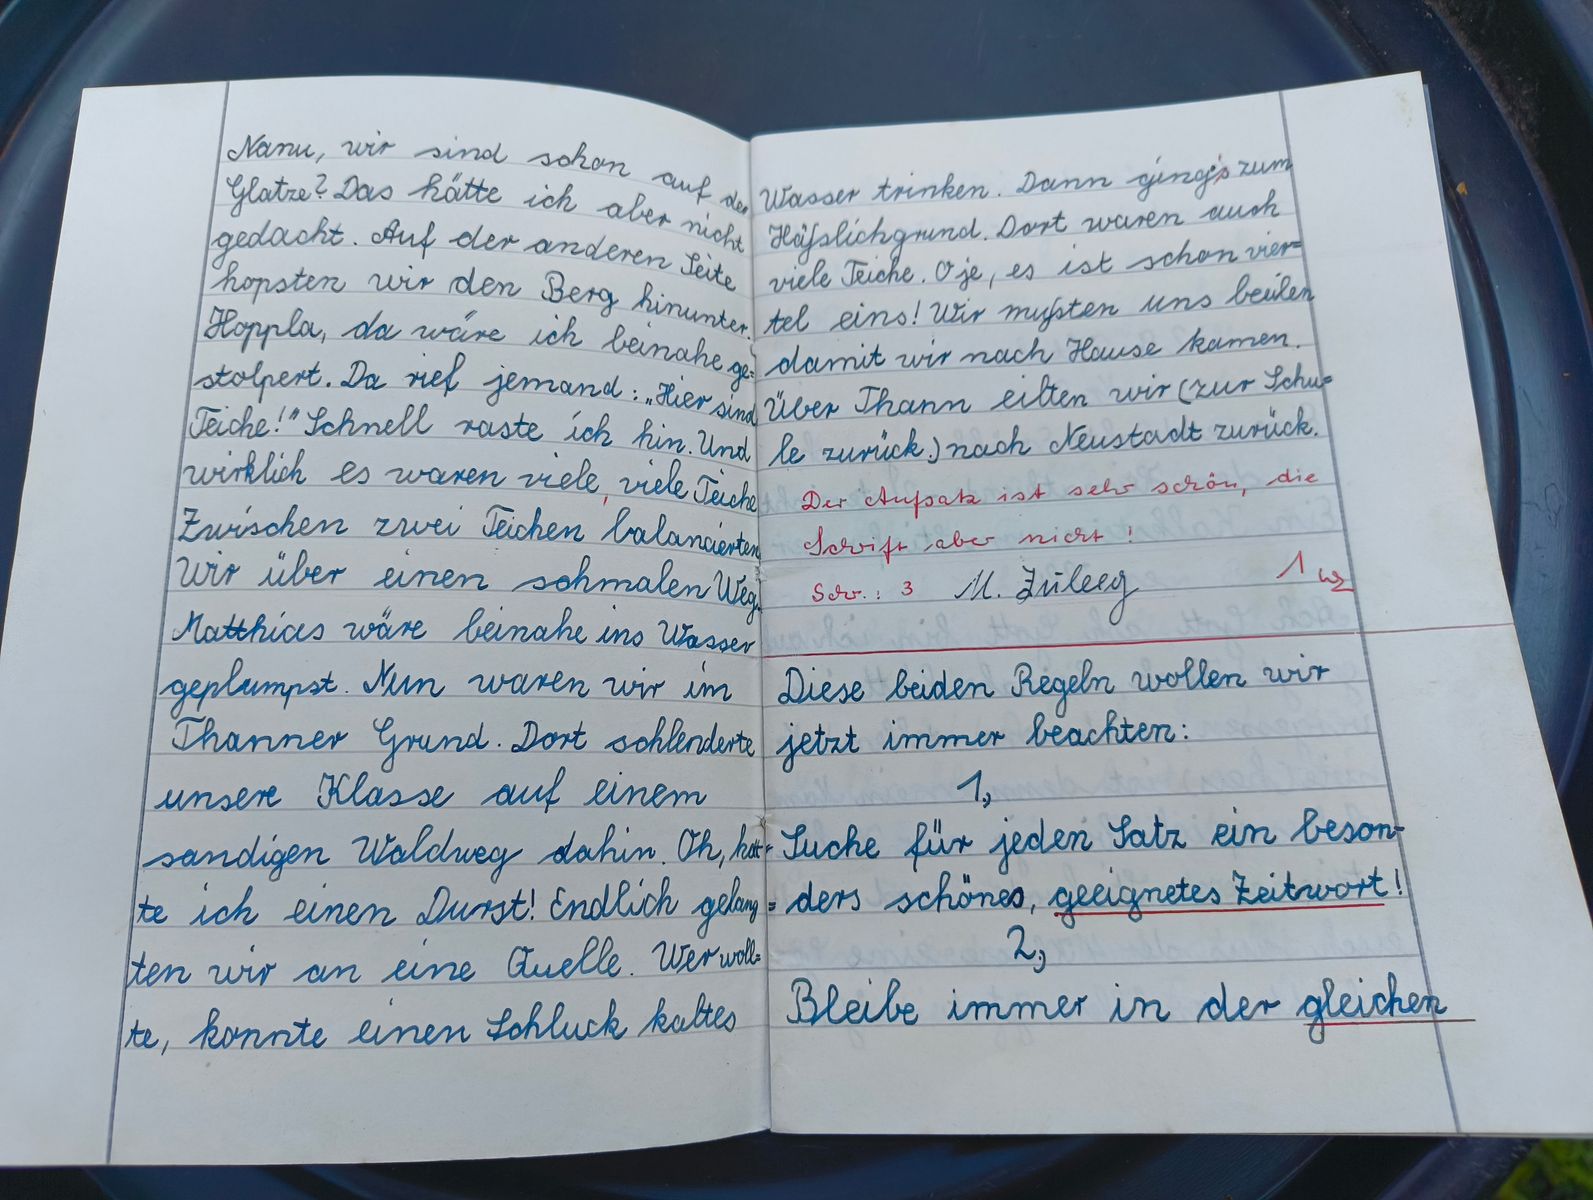 Nanu, wir sind schon auf der
Glatze? Das hätte ich aber nicht
gedacht. Auf der anderen Seite
hopsten wir den Berg hinunter.
Hoppla, da wäre ich beinahe ge=
stolpert. Da rief jemand: „Hier sind
Teiche!" Schnell raste ich hin. Und
wirklich es waren viele, viele Teiche
Zwischen zwei Teichen balancierten
wir über einen schmalen Weg.
Matthias wäre beinahe ins Wasser
geplumpst. Nun waren wir im
Thanner Grund. Dort schlenderte
unsere Klasse auf einem
sandigen Waldweg dahin. Oh, hat=
te ich einen Durst! Endlich gelang=
ten wir an eine Quelle. Wer woll=
te, konnte einen Schluck kaltes
Wasser trinken. Dann ging's zum
Häßlichgrund. Dort waren auch
viele Teiche. Oje, es ist schon vier=
tel eins! Wir mußten uns beeilen
damit wir nach Hause kamen.
Über Thann eilten wir (zur Schu=
le zurück.) nach Neustadt zurück.
Der Aufsatz ist sehr schön, die
Schrift aber nicht!
Schr.: 3 M. Züleeg 1
Diese beiden Regeln wollen wir
jetzt immer beachten:
1,
Suche für jeden Satz ein beson-
ders schönes, geeignetes Zeitwort!
2,
Bleibe immer in der gleichen